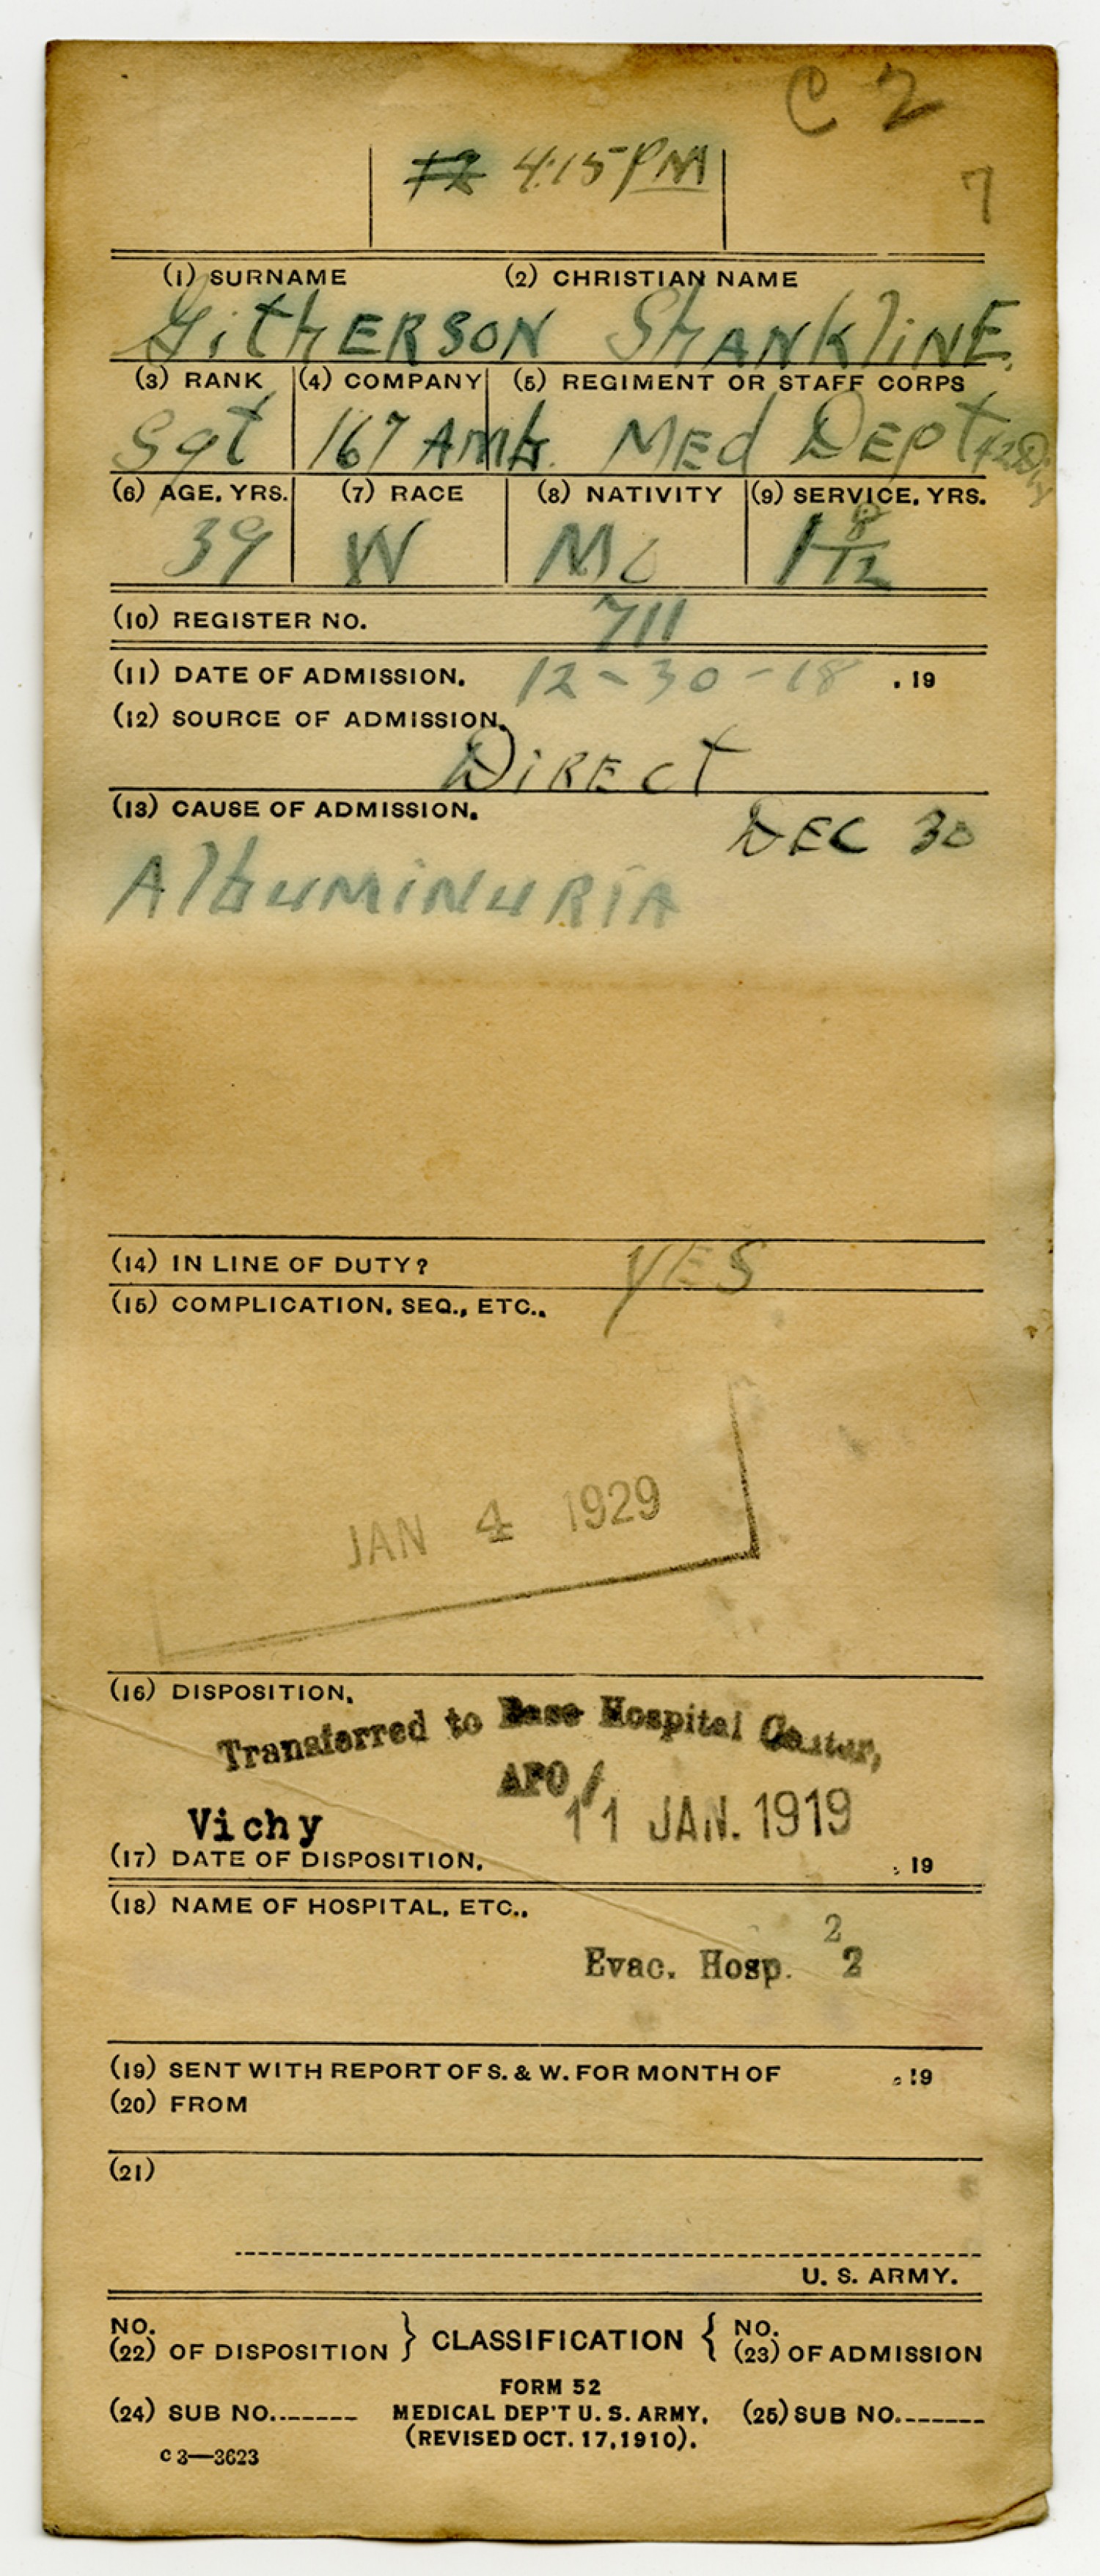 C 2
#2 4:15 PM
7
(1) SURNAME (2) CHRISTIAN NAME
GitHERSON SHANKliNE.
(3) RANK (4) COMPANY (5) REGIMENT OR STAFF CORPS
Sgt 167 Amb. MEd DEpt 42 Div
(6) AGE, YRS. (7) RACE (8) NATIVITY (9) SERVICE, YRS.
39 W Mo 1 8/12
(10) REGISTER NO. 711
(11) DATE OF ADMISSION. 12-30-18 , 19
(12) SOURCE OF ADMISSION.
DiREct
(13) CAUSE OF ADMISSION. DEC 30
AlbuMiNuRiA
(14) IN LINE OF DUTY? YES
(15) COMPLICATION, SEQ., ETC.,
JAN 4 1929
(16) DISPOSITION,
Transferred to Base Hospital Center,
APO
Vichy 11 JAN. 1919
(17) DATE OF DISPOSITION, , 19
(18) NAME OF HOSPITAL, ETC.,
2
Evac. Hosp. 2
(19) SENT WITH REPORT OF S. & W. FOR MONTH OF , 19
(20) FROM
(21)
U. S. ARMY.
NO. (22) OF DISPOSITION } CLASSIFICATION { NO. (23) OF ADMISSION
FORM 52
(24) SUB NO. MEDICAL DEP'T U. S. ARMY, (25) SUB NO.
(REVISED OCT. 17, 1910).
C 3—3623